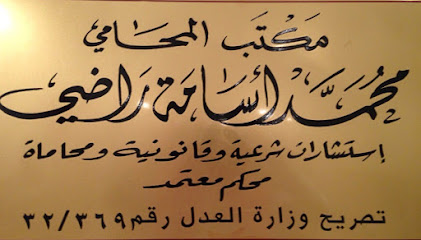 مكتب المحامي
محمد أسامة راضي
إستشارات شرعية وقانونية ومحاماة
محكم معتمد
تصريح وزارة العدل رقم ٣٢/٣٦٩